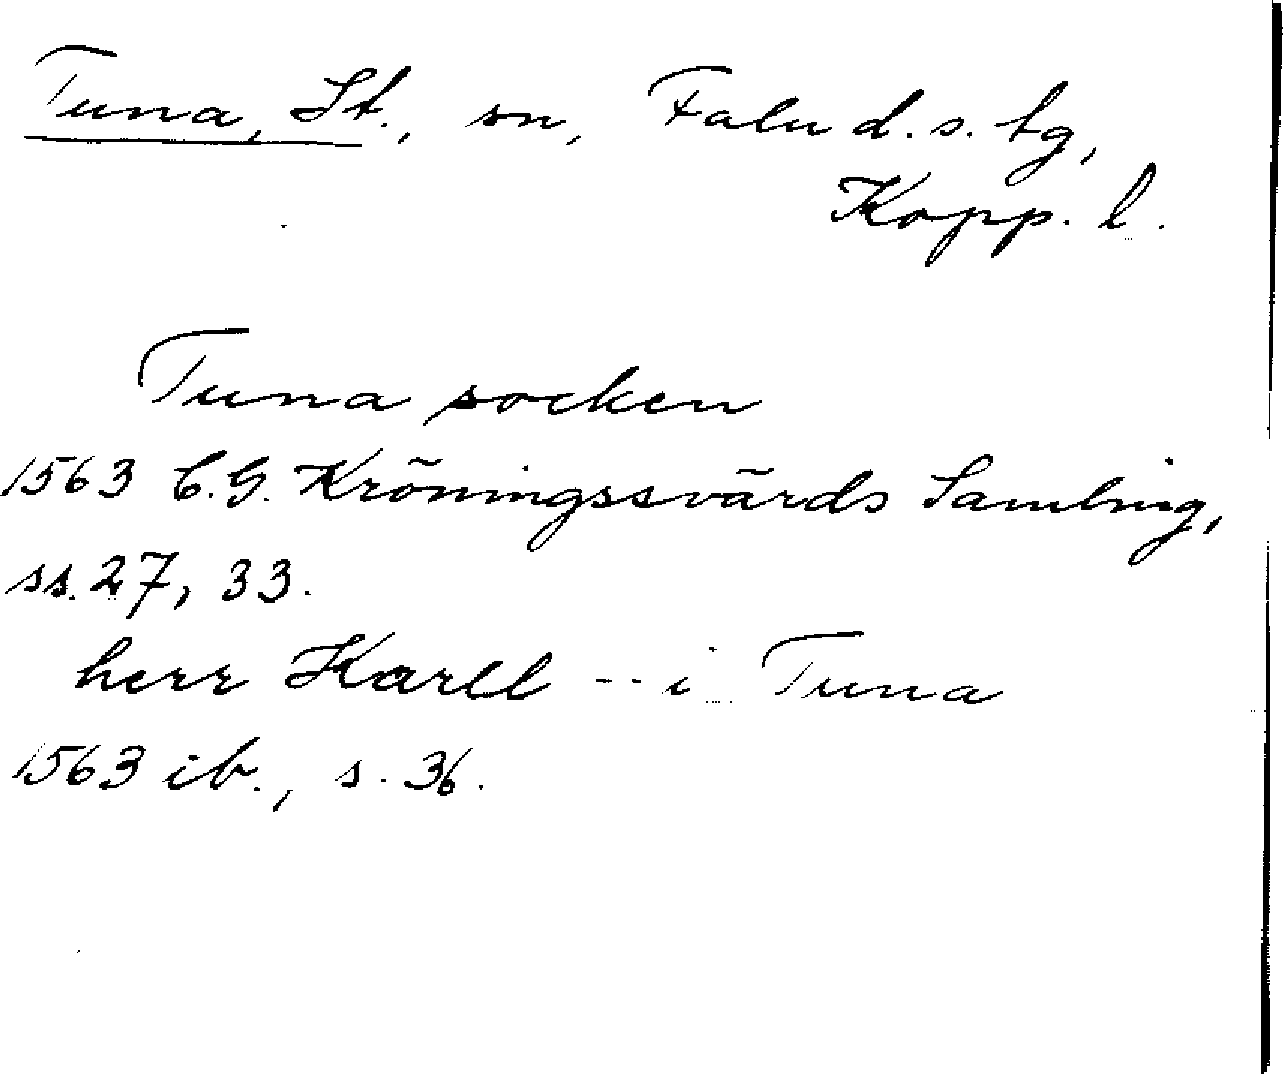 Tuna, St., sn, Falu d. s. tg,
Kopp. l.
Tuna socken
1563 C.G. Kröningssvärds Samling,
ss. 27, 33.
herr Karll -- i Tuna
1563 ib., s. 36.